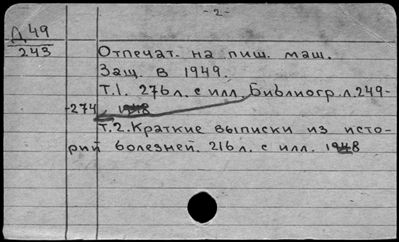 -2-
Д 49
243
Отпечат. на пиш. маш.
Защ. в 1949.
Т.1. 276л. с илл. Библиогр. л. 249-
-274. 1948
Т.2. Краткие выписки из исто-
рий болезней. 216л. с илл. 1948